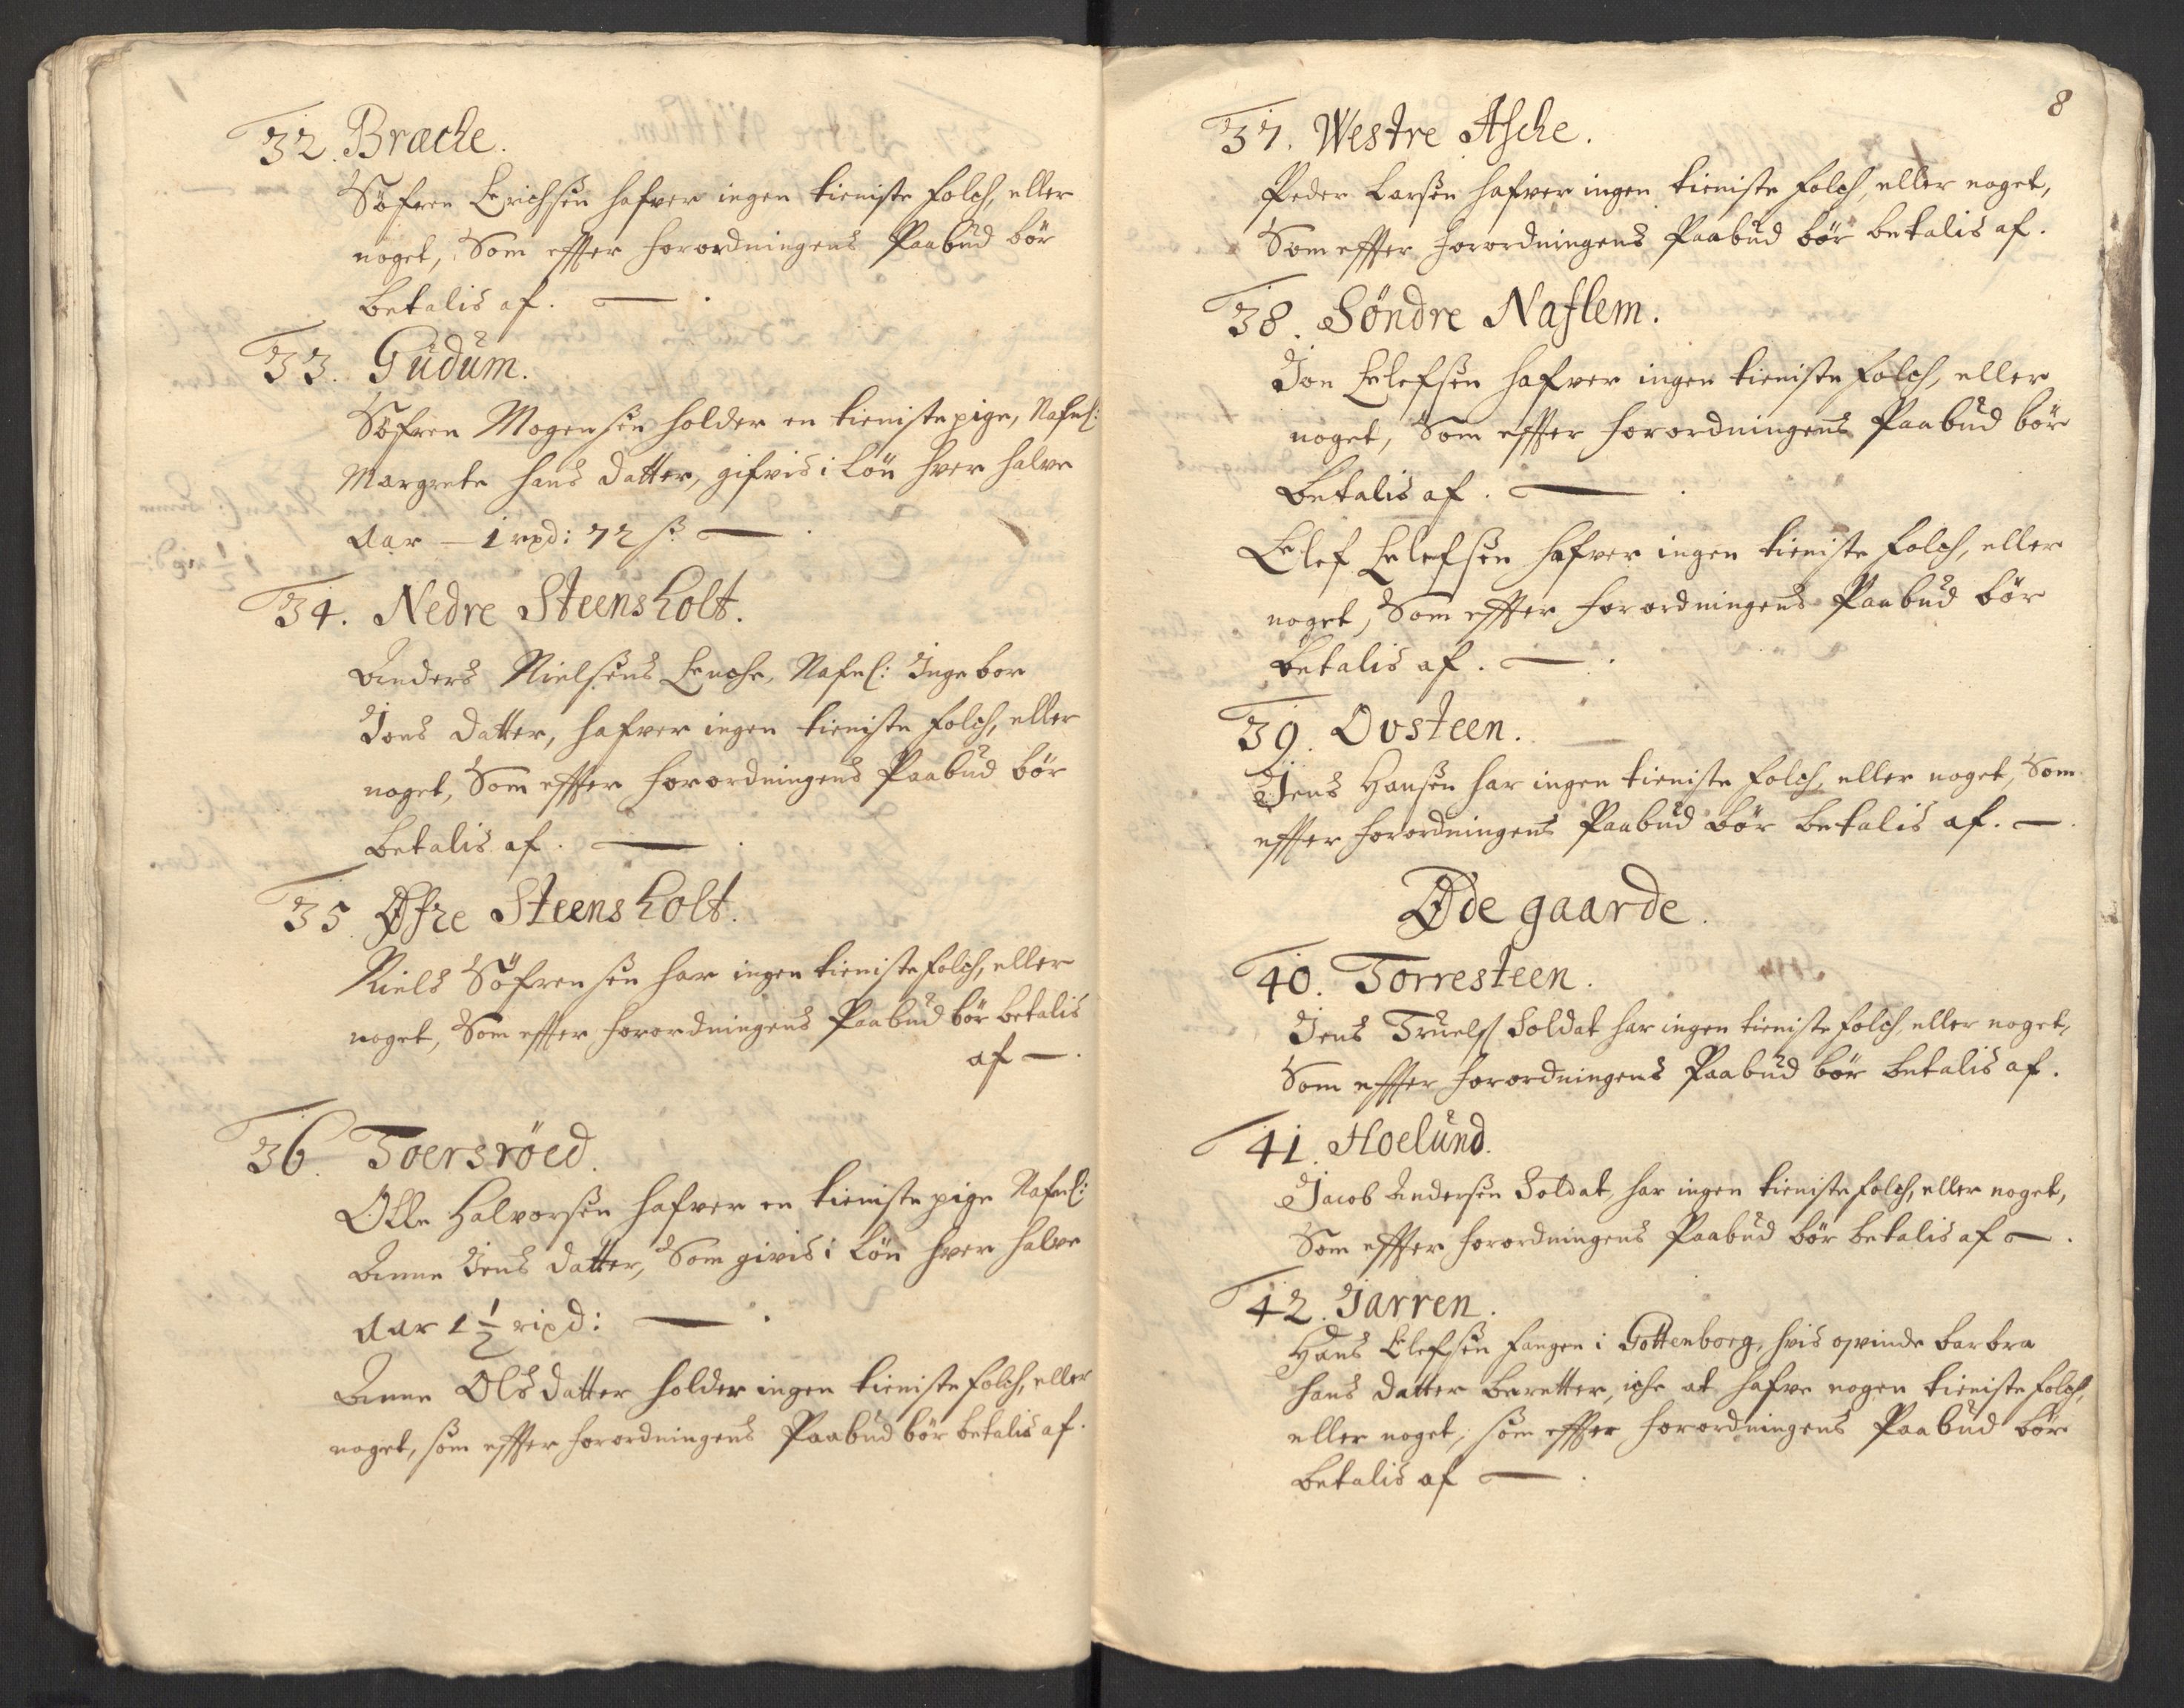 32. Bræche.
Söfren Erichsen hafver ingen tieniste folch, eller
noget, Som effter forordningens Paabud bör
betalis af. — .
33. Gudum.
Söfren Mogensen holder en tieniste pige, Nafnl:
Margrete Hans datter, gifvis i Lön hver halve
Aar — 1 rixd: 72 ß — .
34. Nedre Steensholt.
Anders Nielsens Enche, Nafnl: Ingebor
Jons datter, hafver ingen tieniste folch, eller
noget, Som effter forordningens Paabud bör
betalis af. — .
35. Øfre Steensholt.
Niels Söfrensen har ingen tieniste folch, eller
noget, Som effter forordningens Paabud bör betalis
af — .
36. Toersröed.
Olle Halvorsen hafver en tieniste pige Nafnl:
Anne Jens datter, Som givis i Lön hver halve
Aar 1 1/2 rixd: — .
Anne Ols datter holder ingen tieniste folch, eller
noget, som effter forordningens Paabud bör betalis af.
8
37. Westre Asche.
Peder Larsen hafver ingen tieniste folch, eller noget,
Som effter forordningens Paabud bör betalis af.
38. Søndre Naflem.
Jon Elefsen hafver ingen tieniste folch, eller
noget, Som effter forordningens Paabud bör
betalis af. — .
Elef Elefsen hafver ingen tieniste folch, eller
noget, Som effter forordningens Paabud bör
betalis af. — .
39. Ovsteen.
Jens Hansen har ingen tieniste folch, eller noget, Som
effter forordningens Paabud bör betalis af. — .
Øde gaarde.
40. Torresteen.
Jens Truelß Soldat har ingen tieniste folch, eller noget,
Som effter forordningens Paabud bör betalis af.
41. Hoelund.
Jacob Andersen Soldat, har ingen tieniste folch, eller noget,
Som effter forordningens Paabud bör betalis af — .
42. Jarren.
Hans Elefsen fangen i Gottenborg, hvis qvinde Barbra
Hans datter beretter, iche at hafve nogen tieniste folch,
eller noget, som effter forordningens Paabud bör
betalis af — .